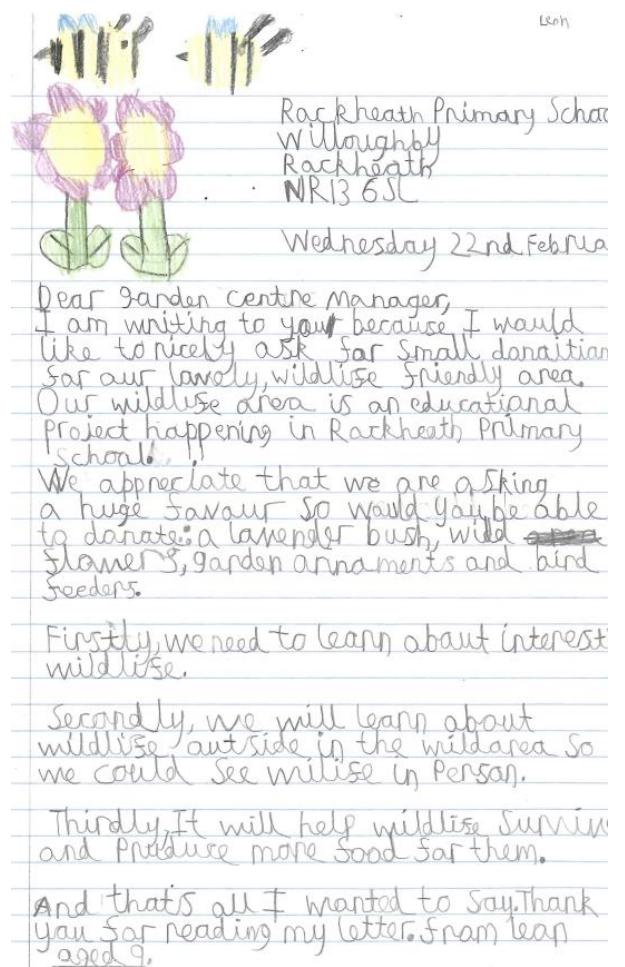 Leah
Rackheath Primary Schoo
Willoughby
Rackheath
NR13 6SL
Wednesday 22nd Februa
Dear garden centre manager,
I am writing to you because I would
like to nicely ask for small donaition
for our lovely, wildlife friendly area.
Our wildlife area is an educational
project happening in Rackheath Primary
School. !!
We appreciate that we are asking
a huge favour so would you be able
to donate: a lavender bush, wild
flowers, garden ornaments and bird
feeders.
Firstly, we need to learn about interesti
wildlife.
Secondly, we will learn about
wildlife outside in the wildarea so
we could see wilife in Person.
Thirdly, It will help wildlife Surviv
and Produce more food for them.
And that's all I wanted to say. Thank
you for reading my letter. from Leah
aged 9.